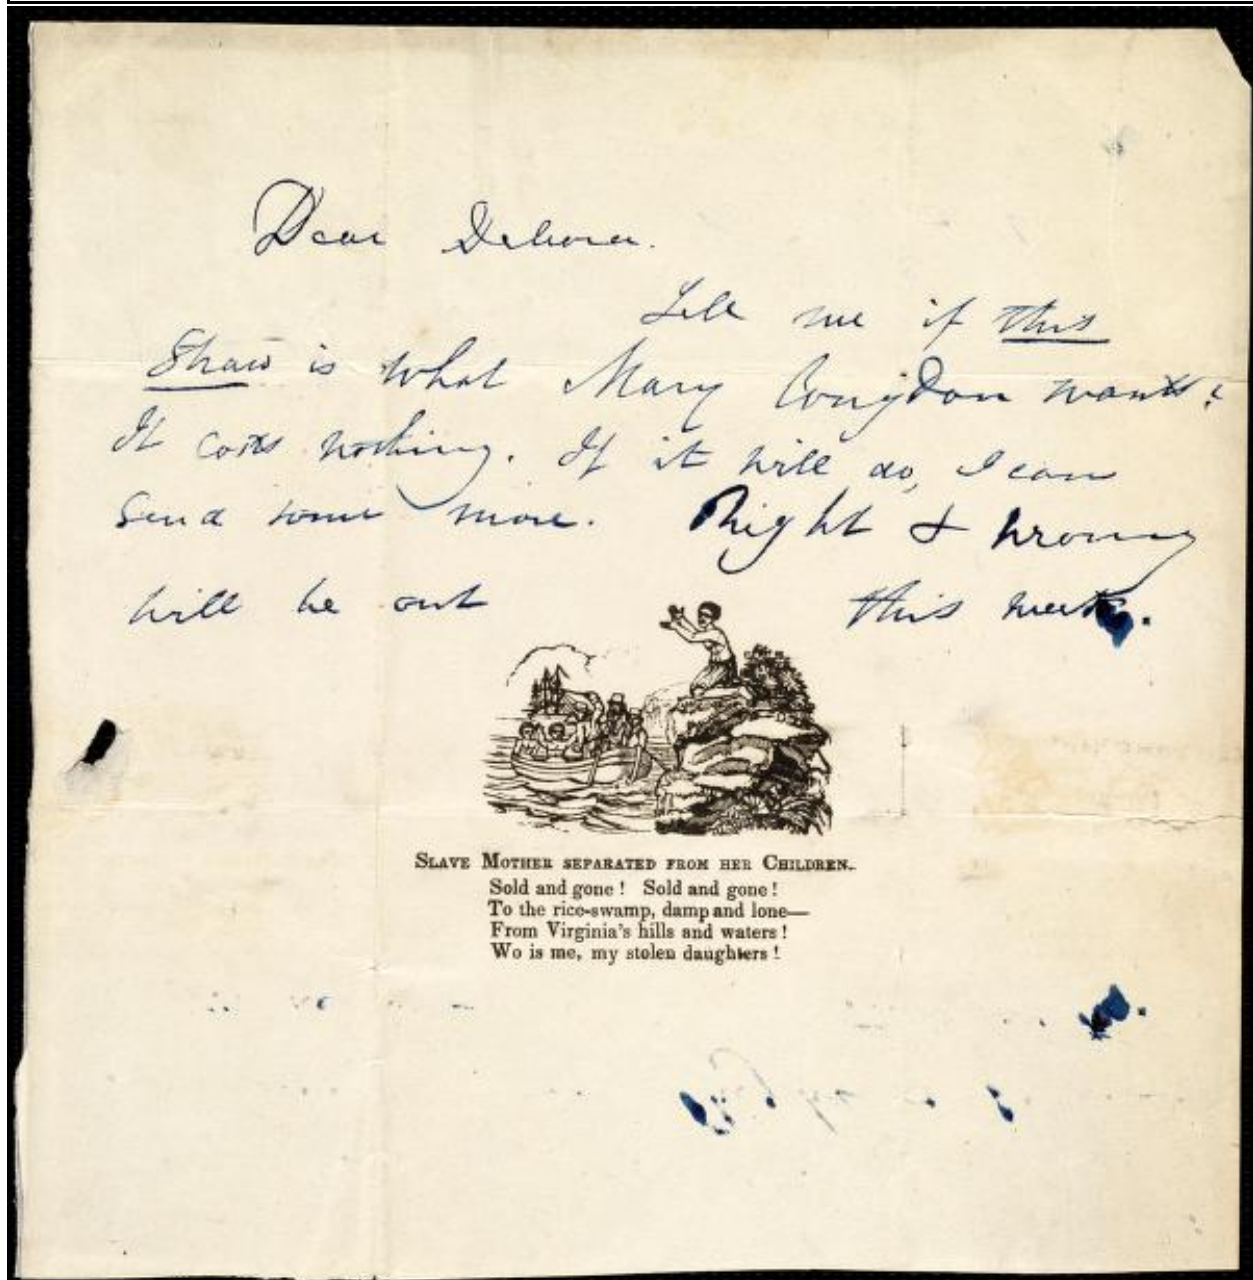 Dear Debora.
Tell me if this
Straw is what Mary Congdon wants?
It costs nothing. If it will do, I can
send some more. Right & Wrong
will be out this week.
SLAVE MOTHER SEPARATED FROM HER CHILDREN.
Sold and gone! Sold and gone!
To the rice-swamp, damp and lone—
From Virginia's hills and waters!
Wo is me, my stolen daughters!